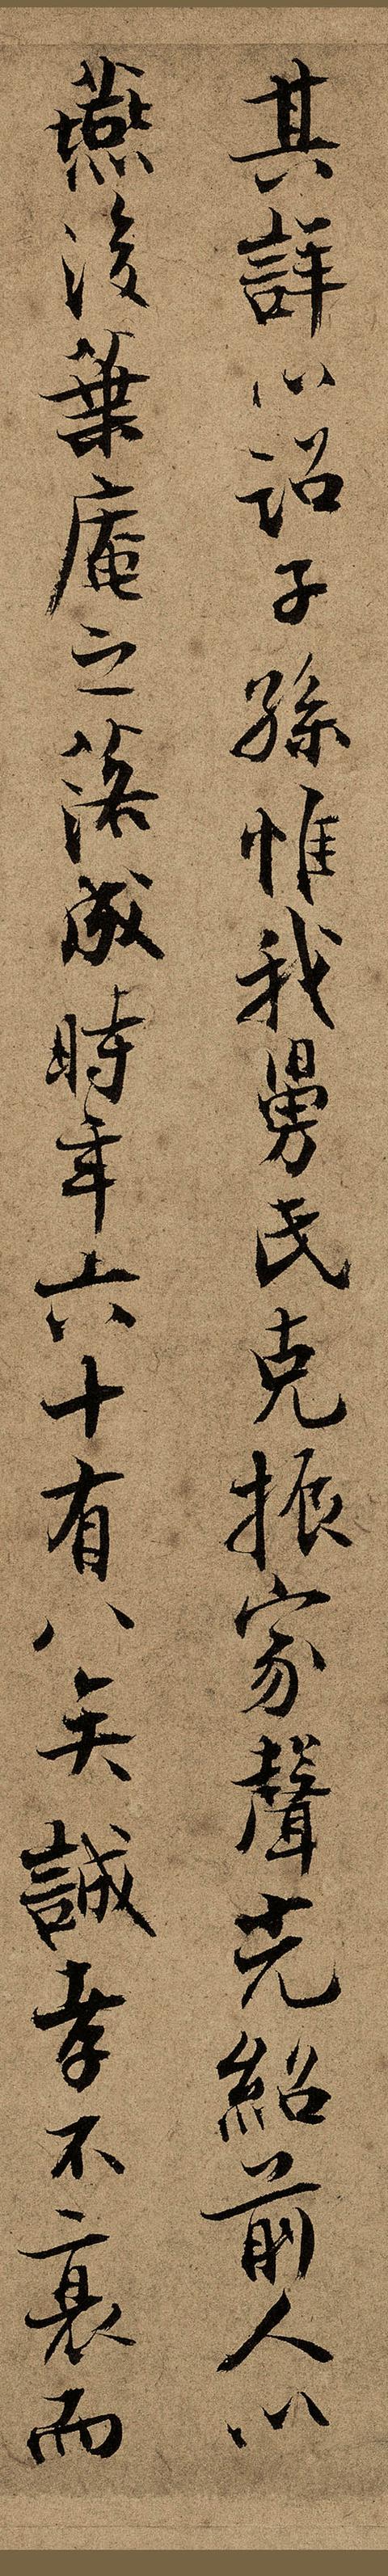 其詳以詔子孫惟我舅氏克振家聲光紹前人以
燕後葉庵之落成時年六十有八矣誠孝不衰而